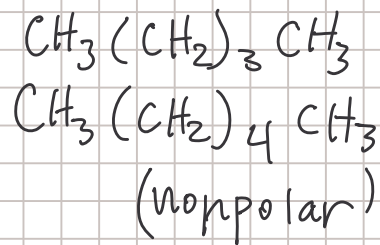 CH₃(CH₂)₃CH₃
CH₃(CH₂)₄CH₃
(nonpolar)